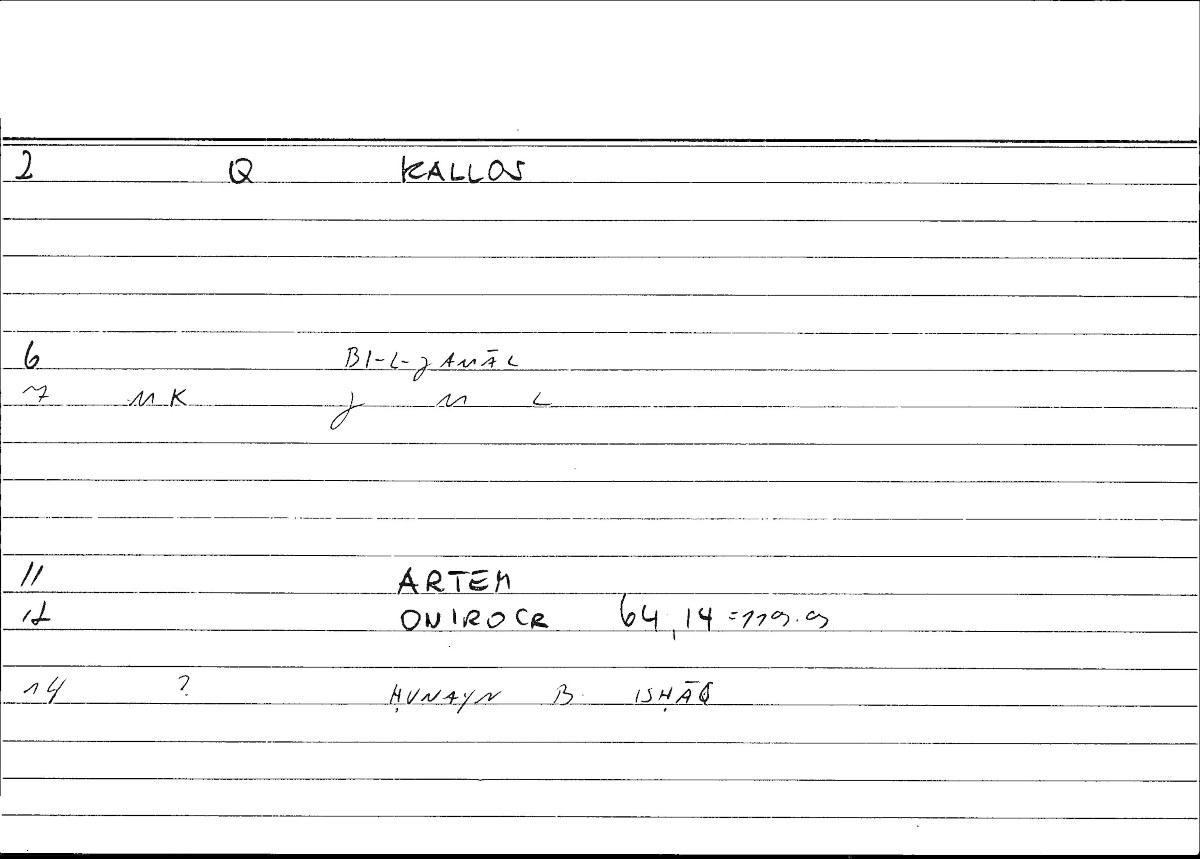 2 Q KALLOS
6 BI-L-JAMĀL
7 MK J M L
11 ARTEM
12 ONIROCR 64,14 = 119.9
14 ? ḤUNAYN B. ISḤĀQ